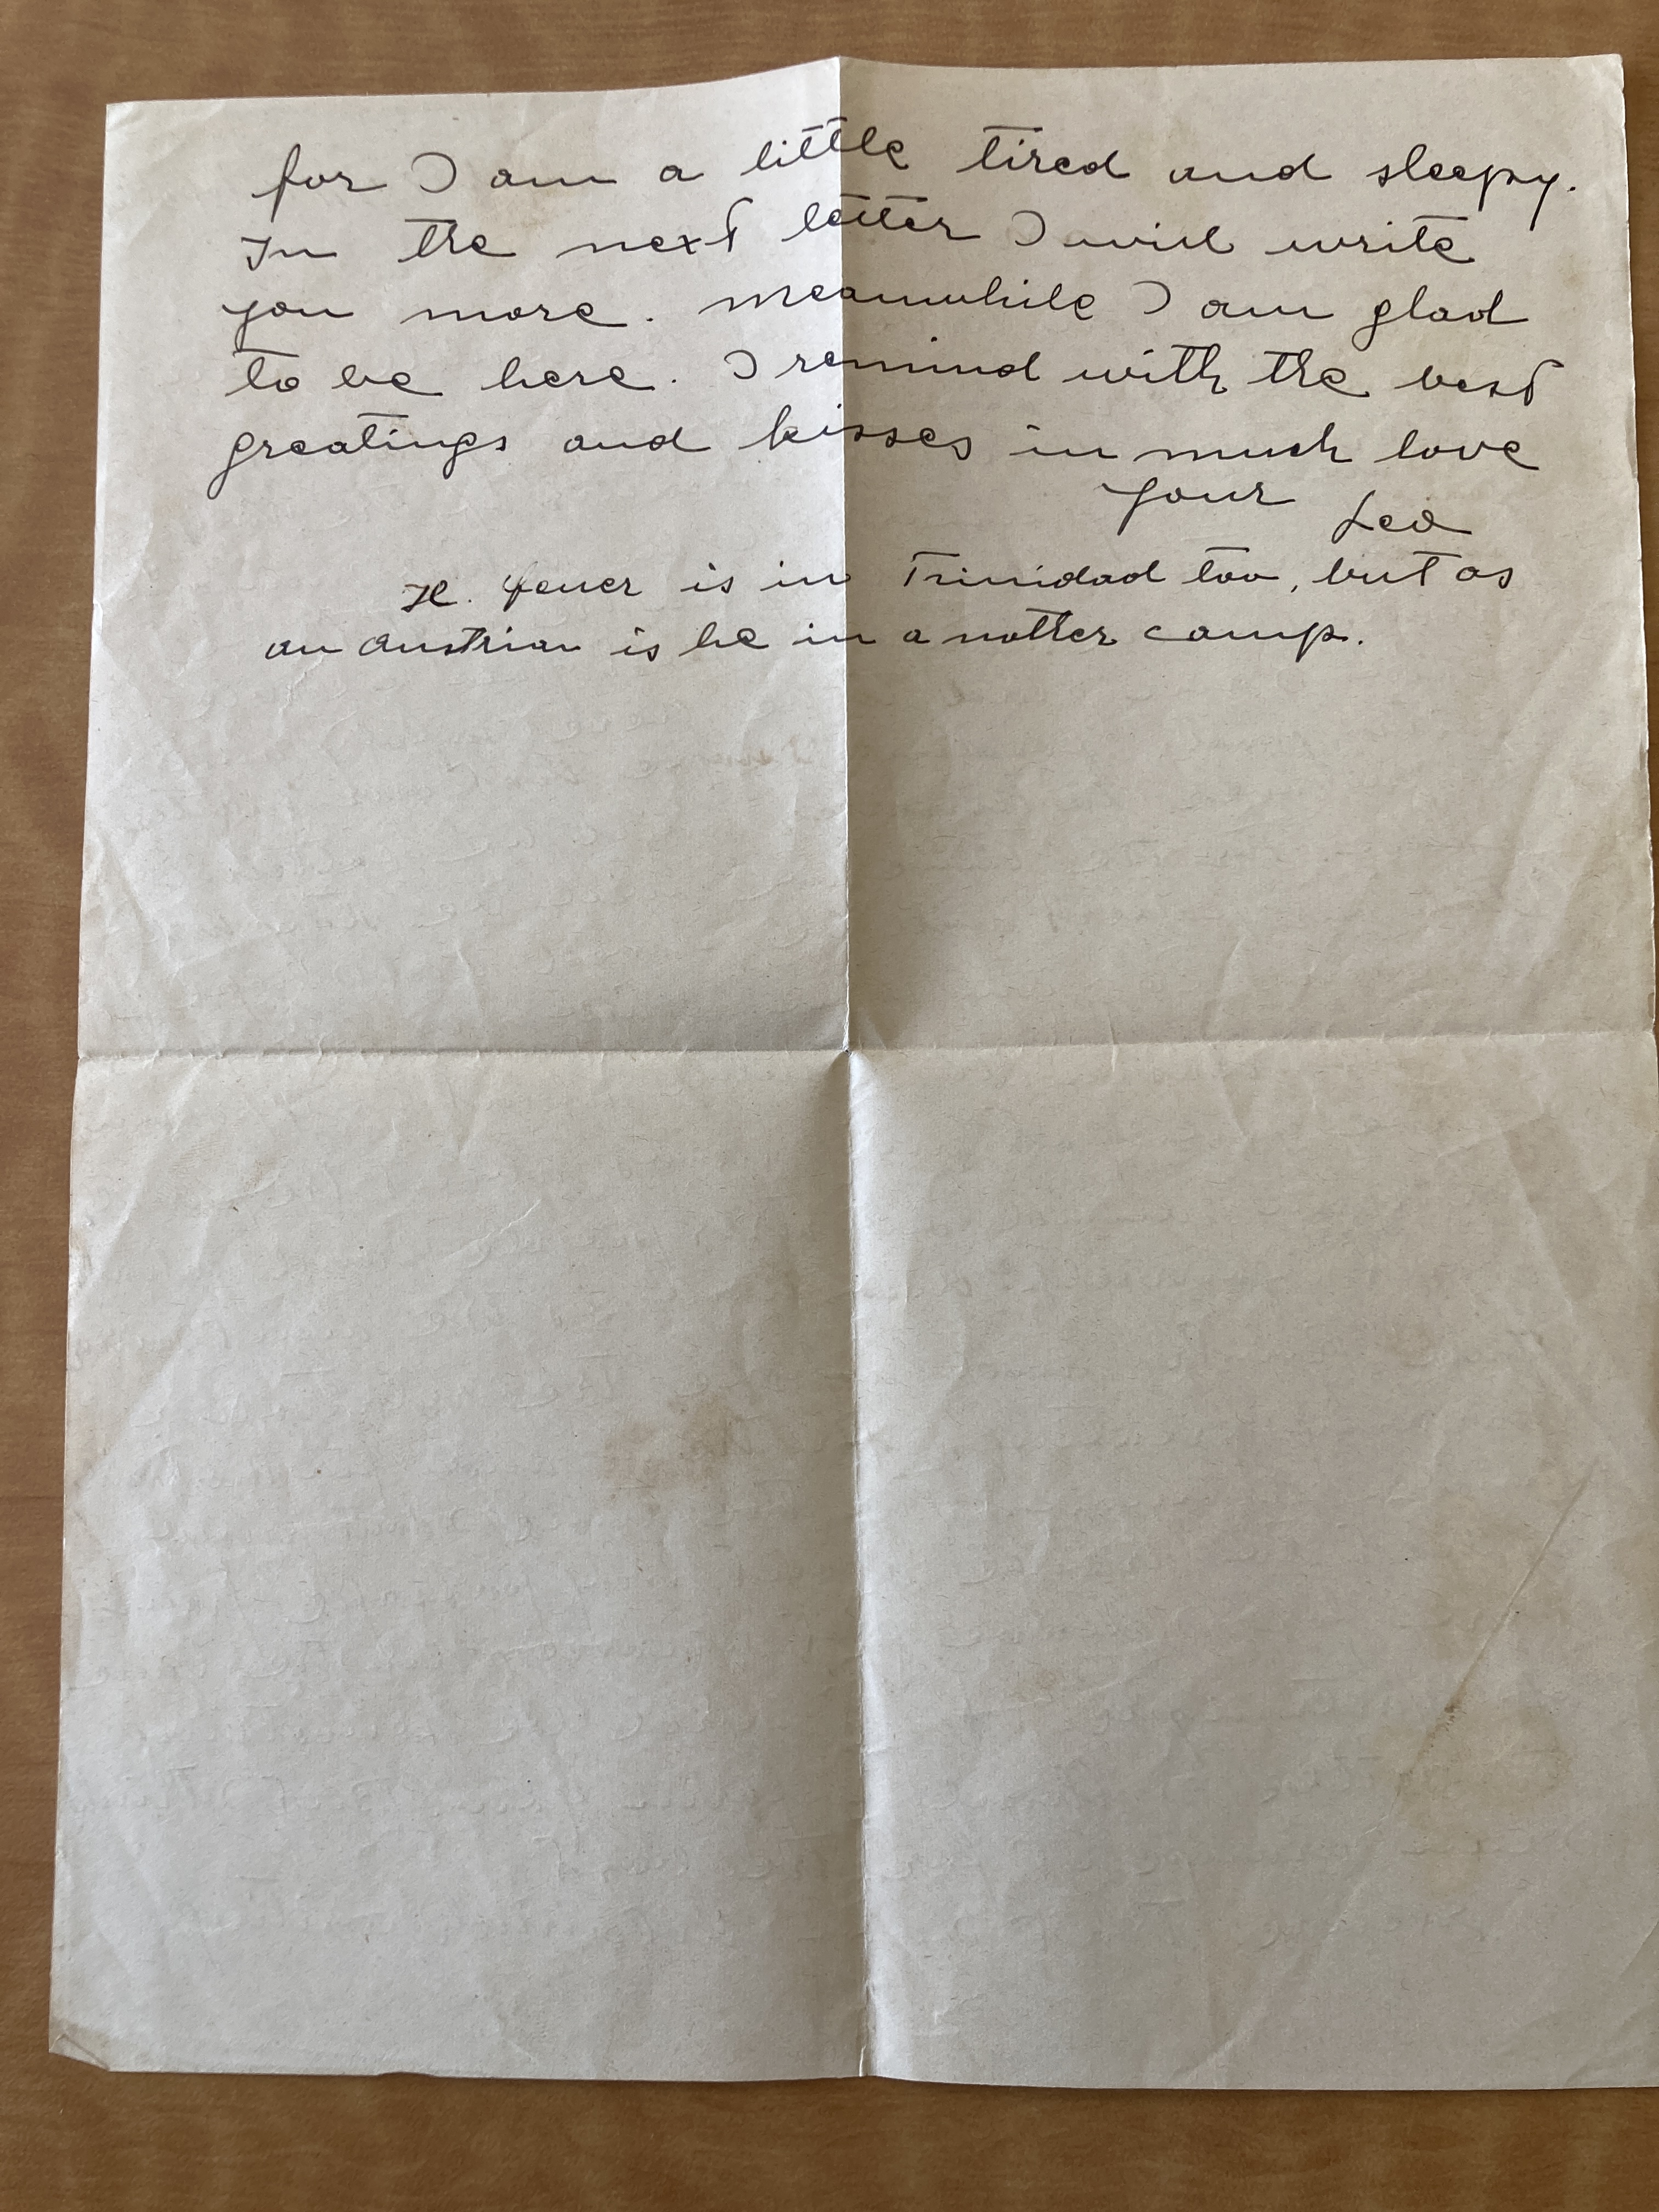 for I am a little tired and sleepy.
In the next letter I will write
you more. Meanwhile I am glad
to be here. I remind with the best
greatings and kisses in much love
Your Leo
H. Feuer is in Trinidad too, but as
an Austrian is he in a notter camp.